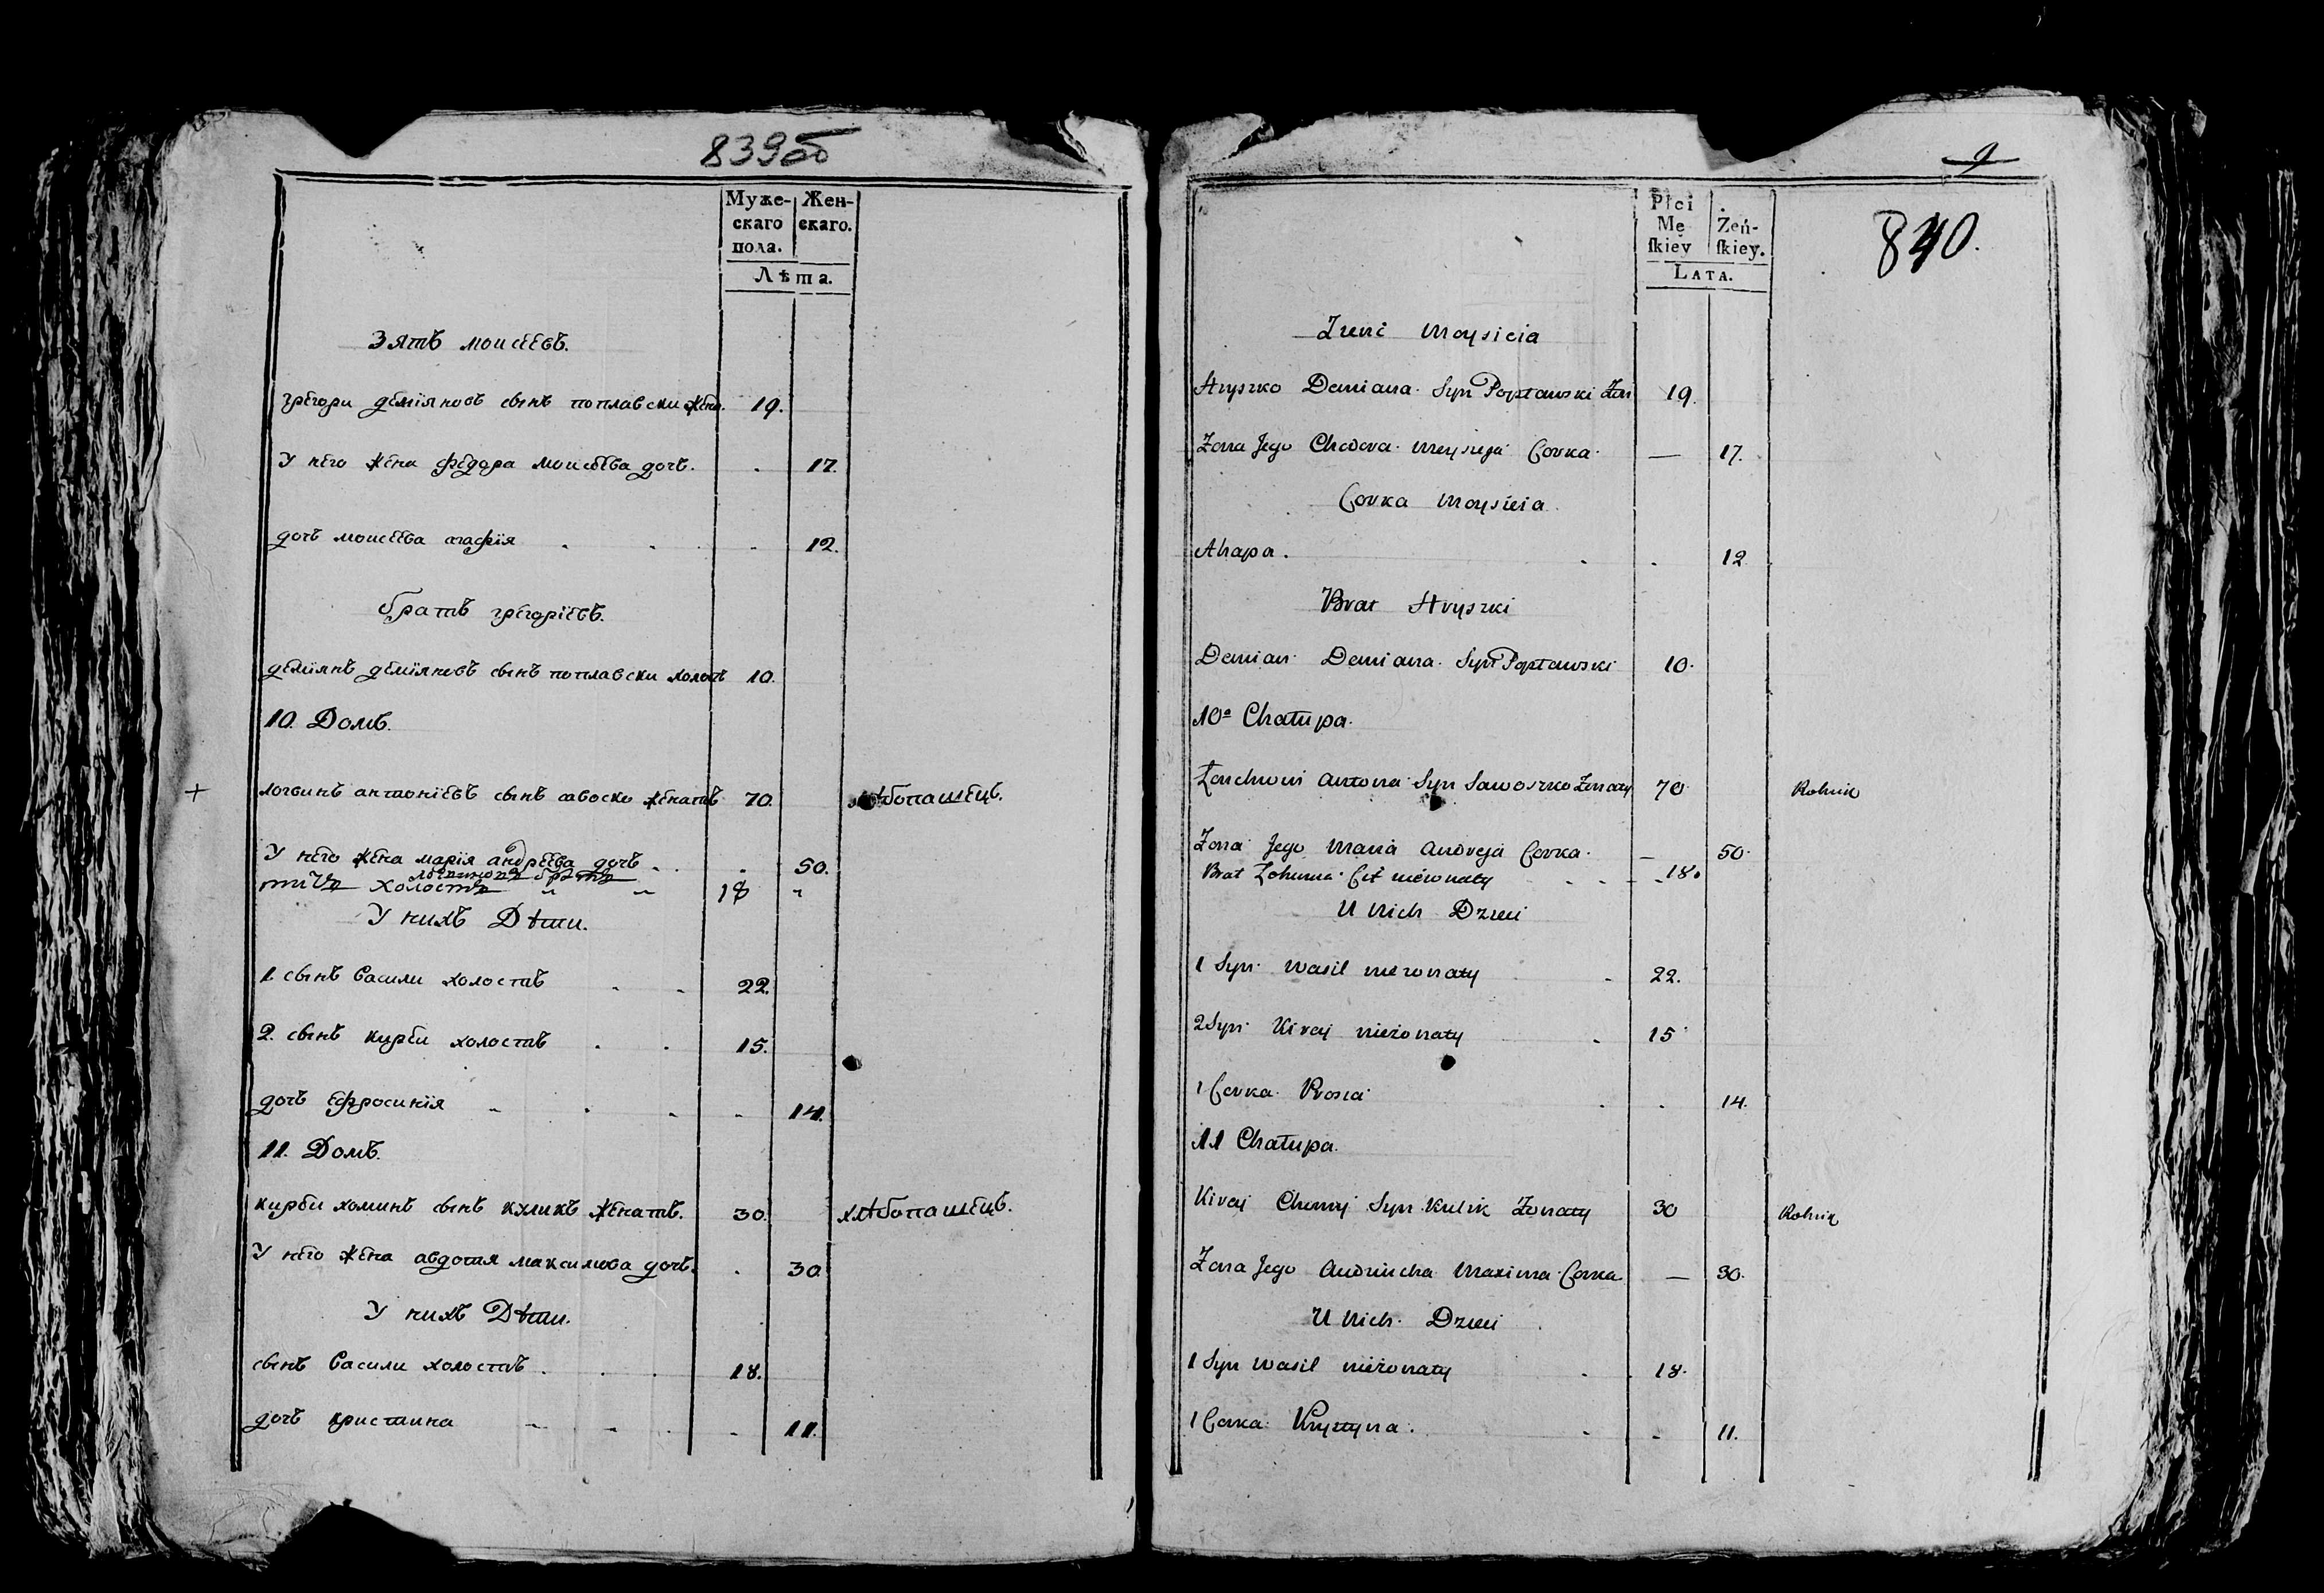 839об
Муже-
скаго
пола.
Жен-
скаго.
Лѣта.
Зять моисеевъ.
грегори демїяновъ сынъ поплавски жена. 19.
У него жена федора моисеева дочь. 17.
дочь моисеева агафїя 12.
братъ грегорїевъ.
демїянъ демїяновъ сынъ поплавски холост 10.
10. Домъ.
+ логвинъ антонїевъ сынъ савоско женатъ 70. хлѣбопашецъ.
У него жена марїя андреева дочь 50.
логвиновъ братъ
титъ холостъ 18
У нихъ Дѣти.
1. сынъ Васили холостъ 22.
2. сынъ кирѣи холостъ 15.
дочь ефросинїя 14.
11. Домъ.
кирѣи хоминъ сынъ куликъ женатъ. 30. хлѣбопашецъ.
У него жена авдотия максимова дочь. 30
У нихъ Дѣти.
сынъ Васили холостъ 18.
дочь кристина 11.
9
840.
Płci
Mę
ſkiey
Żeń-
ſkiey.
LATA.
Zienć Moysieia
Hryszko Demiana Syn Popławski Żon 19.
Żona Jego Chodora Moysieja Corka — 17.
Corka Moysieia
Ahapa. 12
Brat Hryszki
Demian Demiana Syn Popławski 10.
10a Chałupa.
Antona Syn Sawoszko Żonaty 70 Rolnik
Żona Jego Maria Andreja Corka — 50.
Brat nieżonaty 18.
U Nich Dzieci
1 Syn Wasil nieżonaty 22.
2 Syn Kirej nieżonaty 15
1 Corka Prosia 14.
11 Chałupa.
Kirej Chomy Syn Kulik Żonaty 30 Rolnik
Żona Jego Maxima Corka — 30.
U Nich Dzieci
1 Syn Wasil nieżonaty 18.
1 Corka Krystyna. 11.